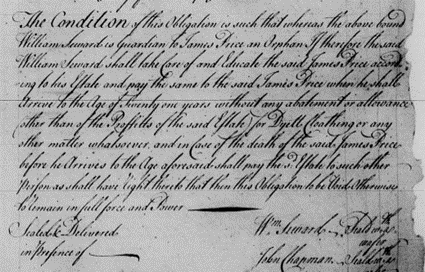 The Condition of this Obligation is such that whereas the above bound
William Seward is Guardian to James Price an Orphan If therefore the said
William Seward shall take Care of and Educate the said James Price accord
ing to his Estate and pay the same to the said James Price when he shall
Arrive to the Age of Twenty one years without any abatement or allowance
(other than of the Proffitts of the said Estate) for Dyett Cloathing or any
other matter whatsoever and in Case of the death of the said James Price
before he Arrives to the Age aforesaid shall pay the sd. Estate to such other
Person as shall have Right thereto that then this Obligation to be Void otherwise
to remain in full force and Power
Sealed & Delivered Wm. Seward Seald
in Presence of John Chapman Seald